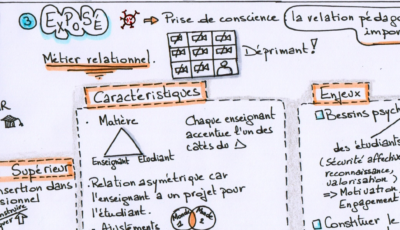 3 EXPOSÉ ⇒ Prise de conscience (la relation pédago
impor
Métier relationnel.
Déprimant!
Caractéristiques
• Matière
Enseignant Etudiant
Chaque enseignant
accentue l'un des
côtés du △
• Relation asymétrique car
l'enseignant a un projet pour
l'étudiant.
• Ajustements
Monde 1 Monde 2
Enjeux
Besoins psych
des étudiants
(Sécurité affective
reconnaissance,
valorisation)
=> Motivation
Engagement
Constituer le
R
Supérieur
nsertion dans
ssionnel